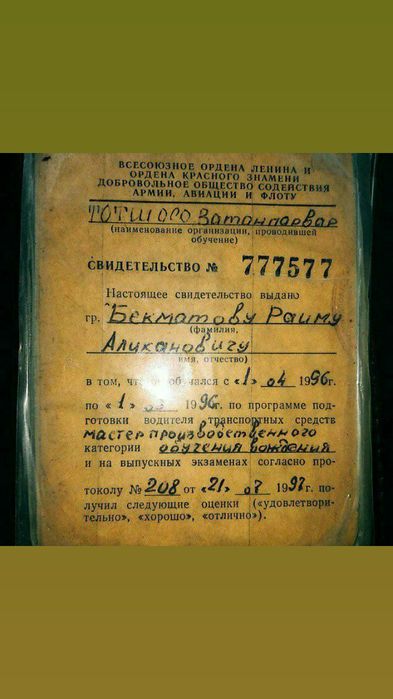 ВСЕСОЮЗНОЕ ОРДЕНА ЛЕНИНА И
ОРДЕНА КРАСНОГО ЗНАМЕНИ
ДОБРОВОЛЬНОЕ ОБЩЕСТВО СОДЕЙСТВИЯ
АРМИИ, АВИАЦИИ И ФЛОТУ
(наименование организации, проводившей
обучение)
СВИДЕТЕЛЬСТВО № 777577
Настоящее свидетельство выдано
гр. Бекматову Раиму
(фамилия,
Алихановичу
имя, отчество)
в том, что обучался с «1» 04 1996г.
по «1» 1996г. по программе под-
готовки водителя транспортных средств
мастер производственного
категории обучения вождения
и на выпускных экзаменах согласно про-
токолу № 208 от «21» 07 1997г. по-
лучил следующие оценки («удовлетвори-
тельно», «хорошо», «отлично»).